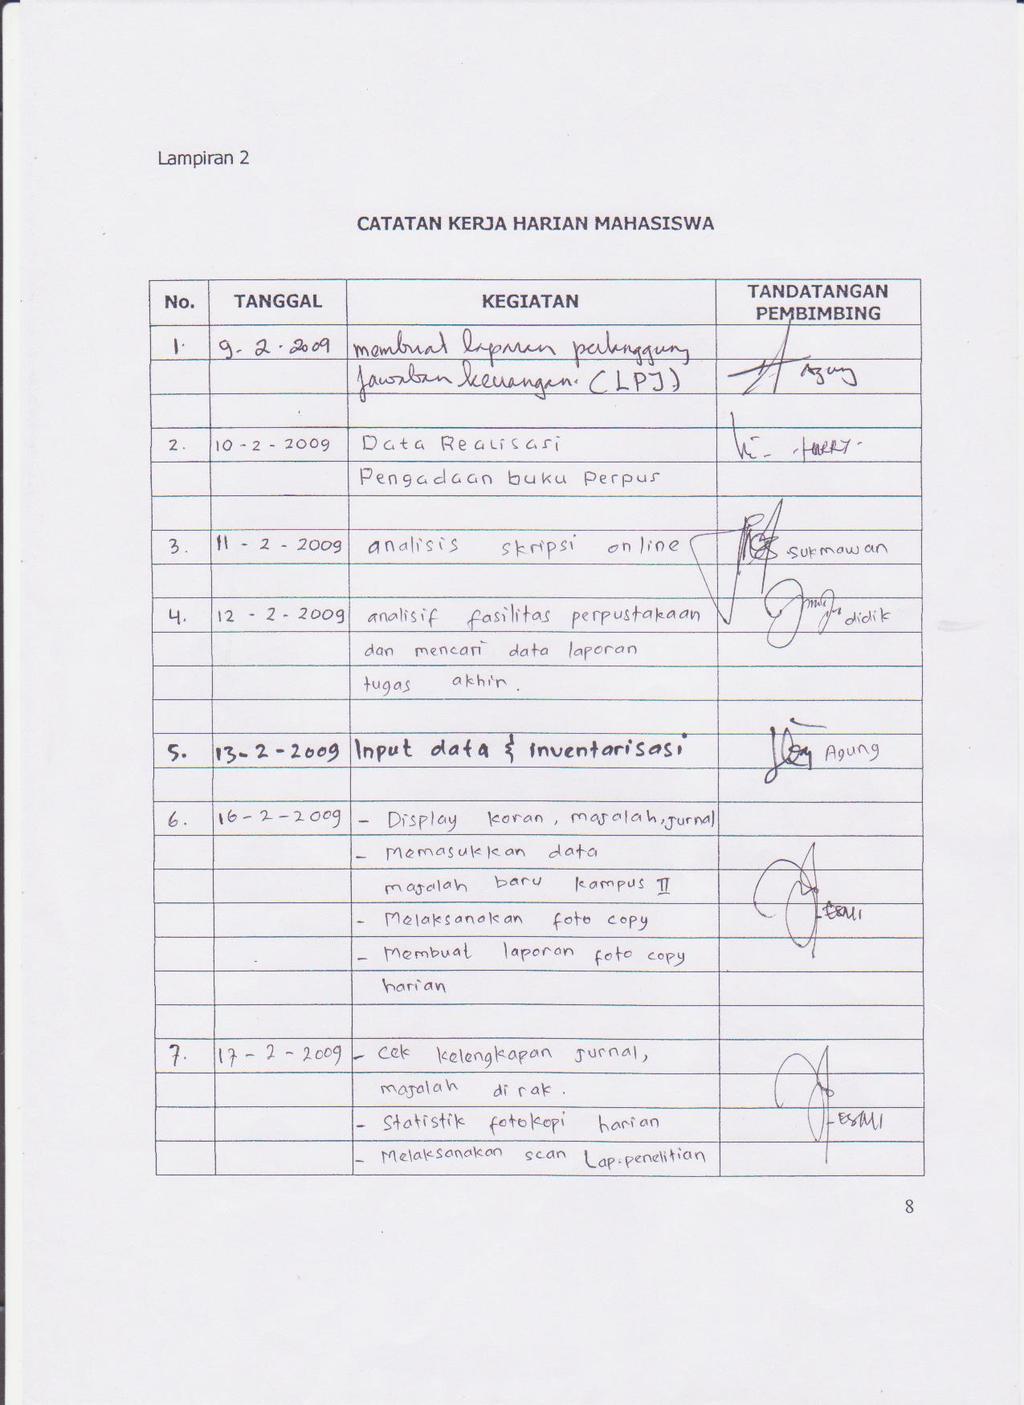 Lampiran 2
CATATAN KERJA HARIAN MAHASISWA
No. TANGGAL KEGIATAN TANDATANGAN PEMBIMBING
1. 9-2-2009 membuat laporan pertanggung
Jawaban keuangan. (LPJ) Agung
2. 10-2-2009 Data Realisasi -HARRY-
Pengadaan buku Perpus
3. 11-2-2009 analisis skripsi online Sukmawan
4. 12-2-2009 analisif fasilitas perpustakaan didik
dan mencari data laporan
tugas akhir.
5. 13-2-2009 Input data & inventarisasi Agung
6. 16-2-2009 - Display koran, majalah, jurnal
- Memasukkan data
majalah baru kampus II
- Melaksanakan foto copy -ESMI
- Membuat laporan foto copy
harian
7. 17-2-2009 - Cek kelengkapan jurnal,
majalah di rak.
- Statistik fotokopi harian -ESMI
- Melaksanakan scan Lap.penelitian
8